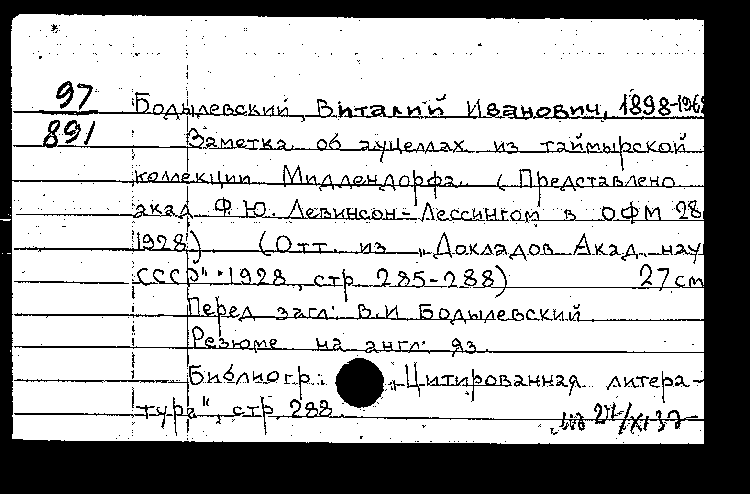 97
891
Бодылевский, Виталий Иванович, 1898-196
Заметка об ауцеллах из таймырской
коллекции Миддендорфа. (Представлено
акад Ф.Ю. Левинсон-Лессингом в ОФМ 28
1928) (Отт. из „Докладов Акад. нау
СССР" 1928, стр. 285-288) 27 см
Перед загл: В.И Бодылевский
Резюме на англ. яз.
Библиогр.: „Цитированная литера-
тура", стр. 288.